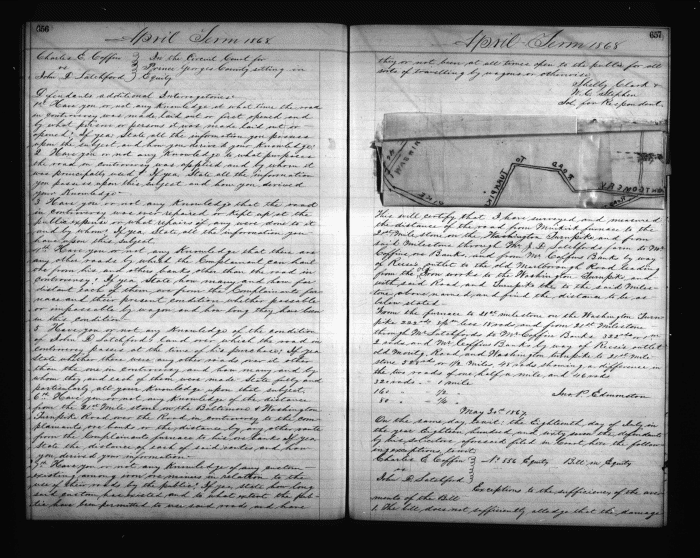 656
April Term 1868
Charles E. Coffin } In the Circuit Court for
vs } Prince Georges County sitting in
John D. Latchford } Equity
Defendants additional Interrogatories
1st Have you or not any Knowledge at what time the road
in controversy was made, laid out or first opened and
by what person or persons it was made laid out or
opened? If yea State all the information you possess
upon the subject and how you derived your Knowledge.
2 Have you or not any Knowledge to what purposes
the road in controversy was applied and by whom it
was principally used? If yea State all the information
you possess upon this subject and how you derived
your Knowledge
3 Have you or not any Knowledge that the road
in controversy was ever repaired or Kept up at the
public expense or what repairs if any were done to it
and by whom? If yea State all the information you
have upon this subject.
4th Have you or not any Knowledge that there are
any other roads by which the Complainant can haul
ore from his and others banks other than the road in
controversy? If yea State how many and how far
distant each of them are from the Complainants fur-
nace and their present condition whether passable
or impassable by wagons and how long they have been
in this condition.
5 Have you or not any Knowledge of the condition
of John D. Latchfords land over which the road in
controversy passes at the time of his purchase? If yea
State whether there were any other roads over it other
than the one in controversy and how many and by
whom they and each of them were made State fully and
particularly all your Knowledge upon this subject.
6th Have you or not any Knowledge of the distance
from the 21st Mile stone on the Baltimore & Washington
Turnpike Road over the Road in controversy to the Com-
plainants ore banks or the distance by any other route
from the Complainants furnace to his ore banks If yea
State the distance of each of said routes and how
you derived your information
7th Have you or not any Knowledge of any custom
existing among iron ore means in relation to the
use of their roads by the public? If yea, state how long
such custom has existed and to what extent the pub-
lic has been permitted to use said roads and have
657
April Term 1868
they or not been at all times open to the public for all
sorts of travelling by wagons or otherwise.
Shelby Clark &
N. C. Stephen
Sol. for Respondent
PIKE
TO TURNPIKE
ROAD
This will certify that I have surveyed and measured
the distance of the road from Minks furnace to the
20th Milestone on the Washington Turnpike and from
said Milestone through Mr. J. D. Latchfords farm to Mr.
Coffins ore Banks, and from Mr. Coffins Banks by way
of Reese's outlet to the old Marlborough Road leading
from the Iron works to the Washington Turnpike and
with said Road and Turnpike to the said Miles-
tone above named, and find the distance to be as
below stated.
From the furnace to 21st milestone on the Washington Turn-
through Mr. Latchfords to Mr. Coffins Banks
2 rods and Mr. Coffins Banks by way of Reese's outlet
the two roads of one half a mile and 46 rods
320 rods - 1 mile
160 " - 1/2 "
80 " - 1/4 "
Jno. P. Edmonston
May 30th 1867.
On the same day to wit: the Eighteenth day of July in
the year Eighteen hundred and sixty seven the defendants
by his solicitor aforesaid filed in Court here the follow-
ing exceptions to wit
Charles E. Coffin } No 556 Equity Bill in Equity
vs }
John D. Latchford }
Exceptions to the sufficiency of the aver-
ments of the Bill
1. The bill does not sufficiently alledge that the damage